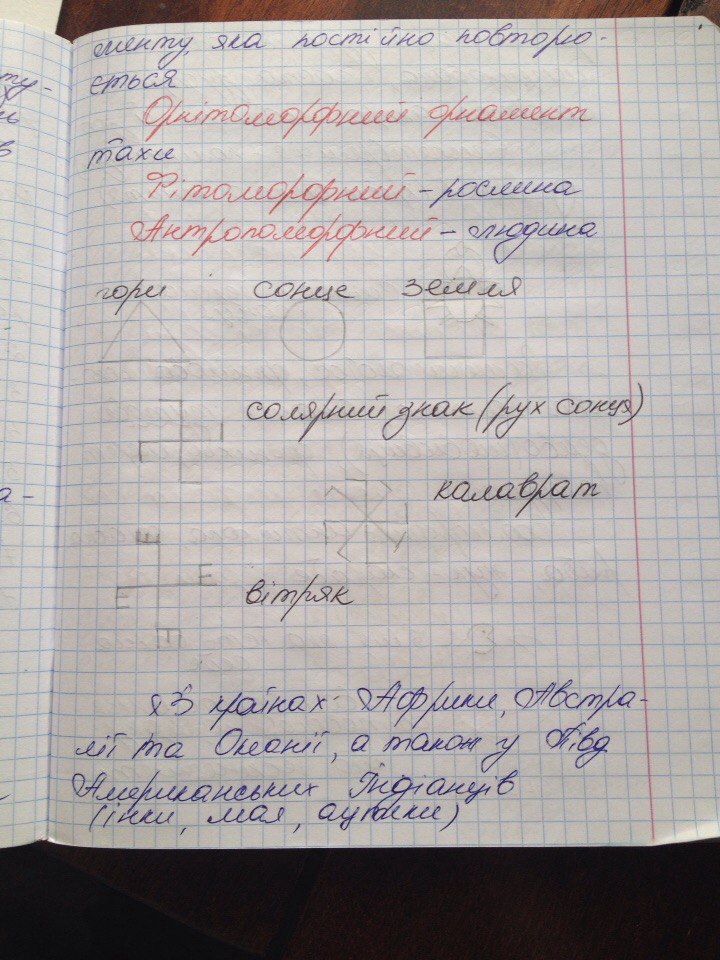 менту, яка постійно повторю-
ється
Орнітоморфний орнамент
тахи
Фітоморфний – рослина
Антропоморфний – людина
гори сонце земля
солярний знак (рух сонця)
калаврат
вітряк
країнах Африки, Австра-
лії та Океанії, а також у Півд
Американських Індіанців
(інки, мая, ацтеки)